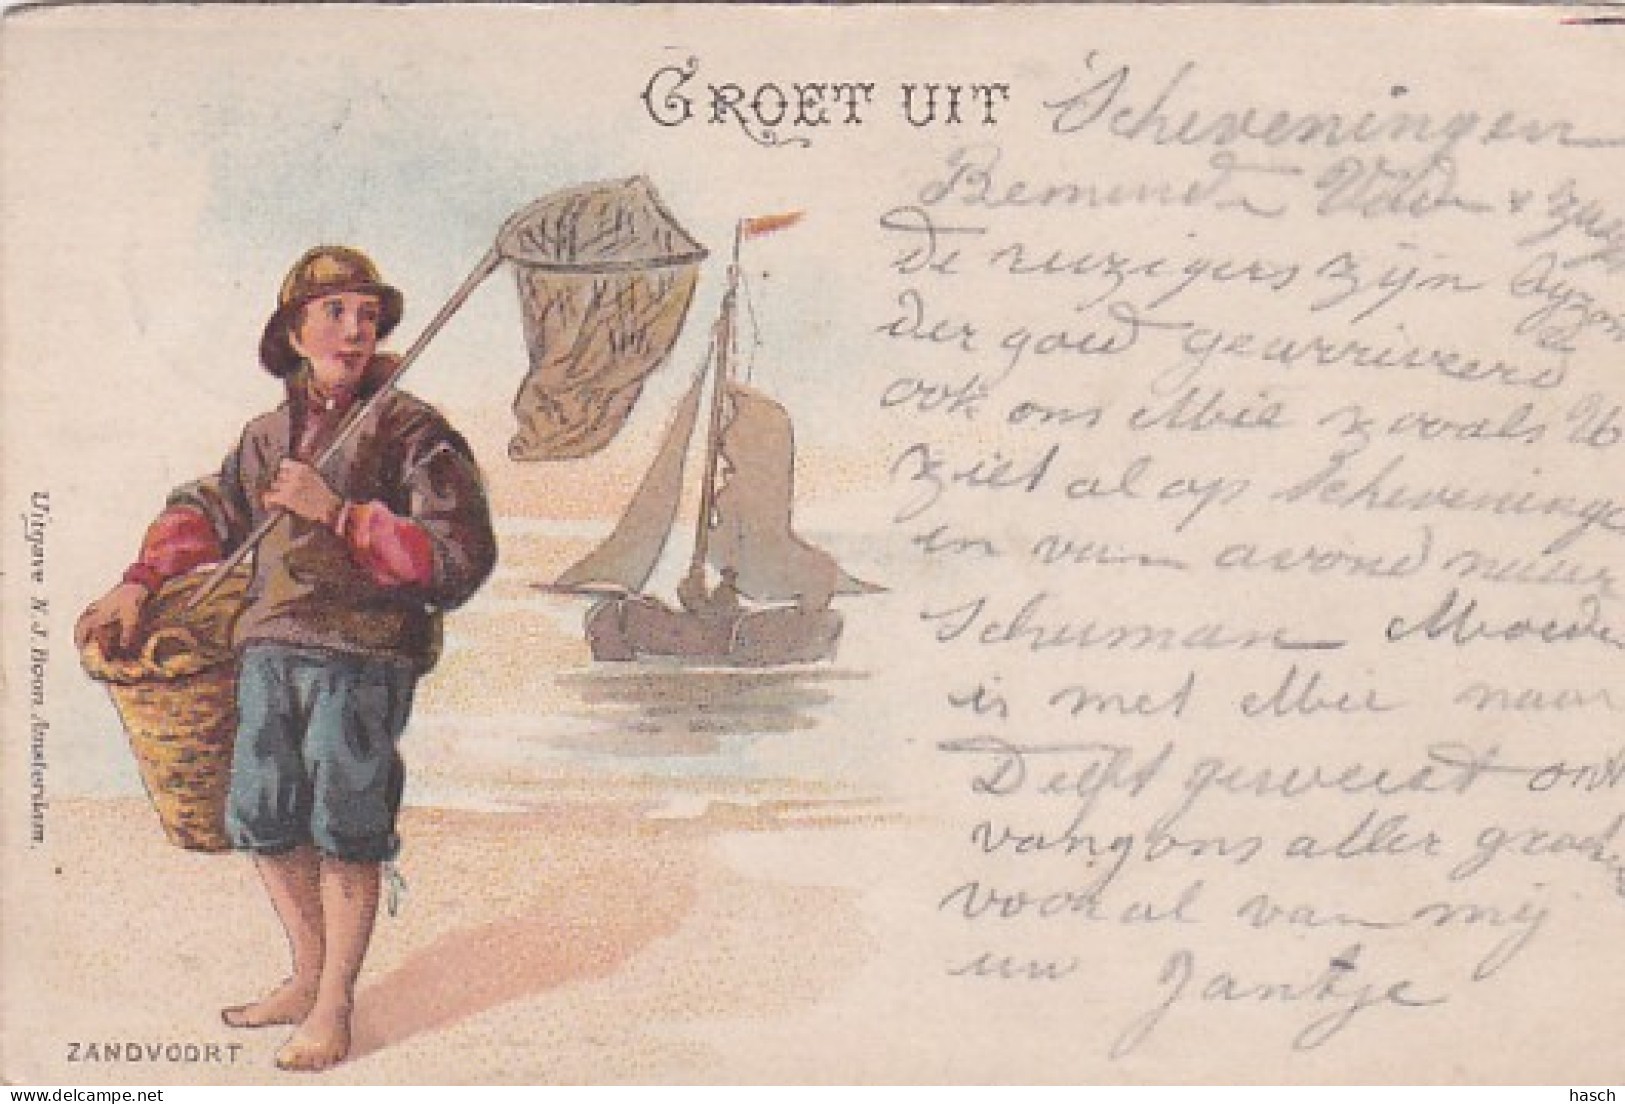 GROET UIT Scheveningen
Beminde Vader &
de reizigers zijn byzon
der goed gearriveerd
ook ons Mie zooals U
ziet al op Scheveninge
en van avond naar
Schuman Moeder
is met Mie naar
Delft geweest ont
vang ons aller groeten
vooral van mij
uw Jantje
Uitgave N. J. Boon Amsterdam.
ZANDVOORT
hasch
delcampe.net